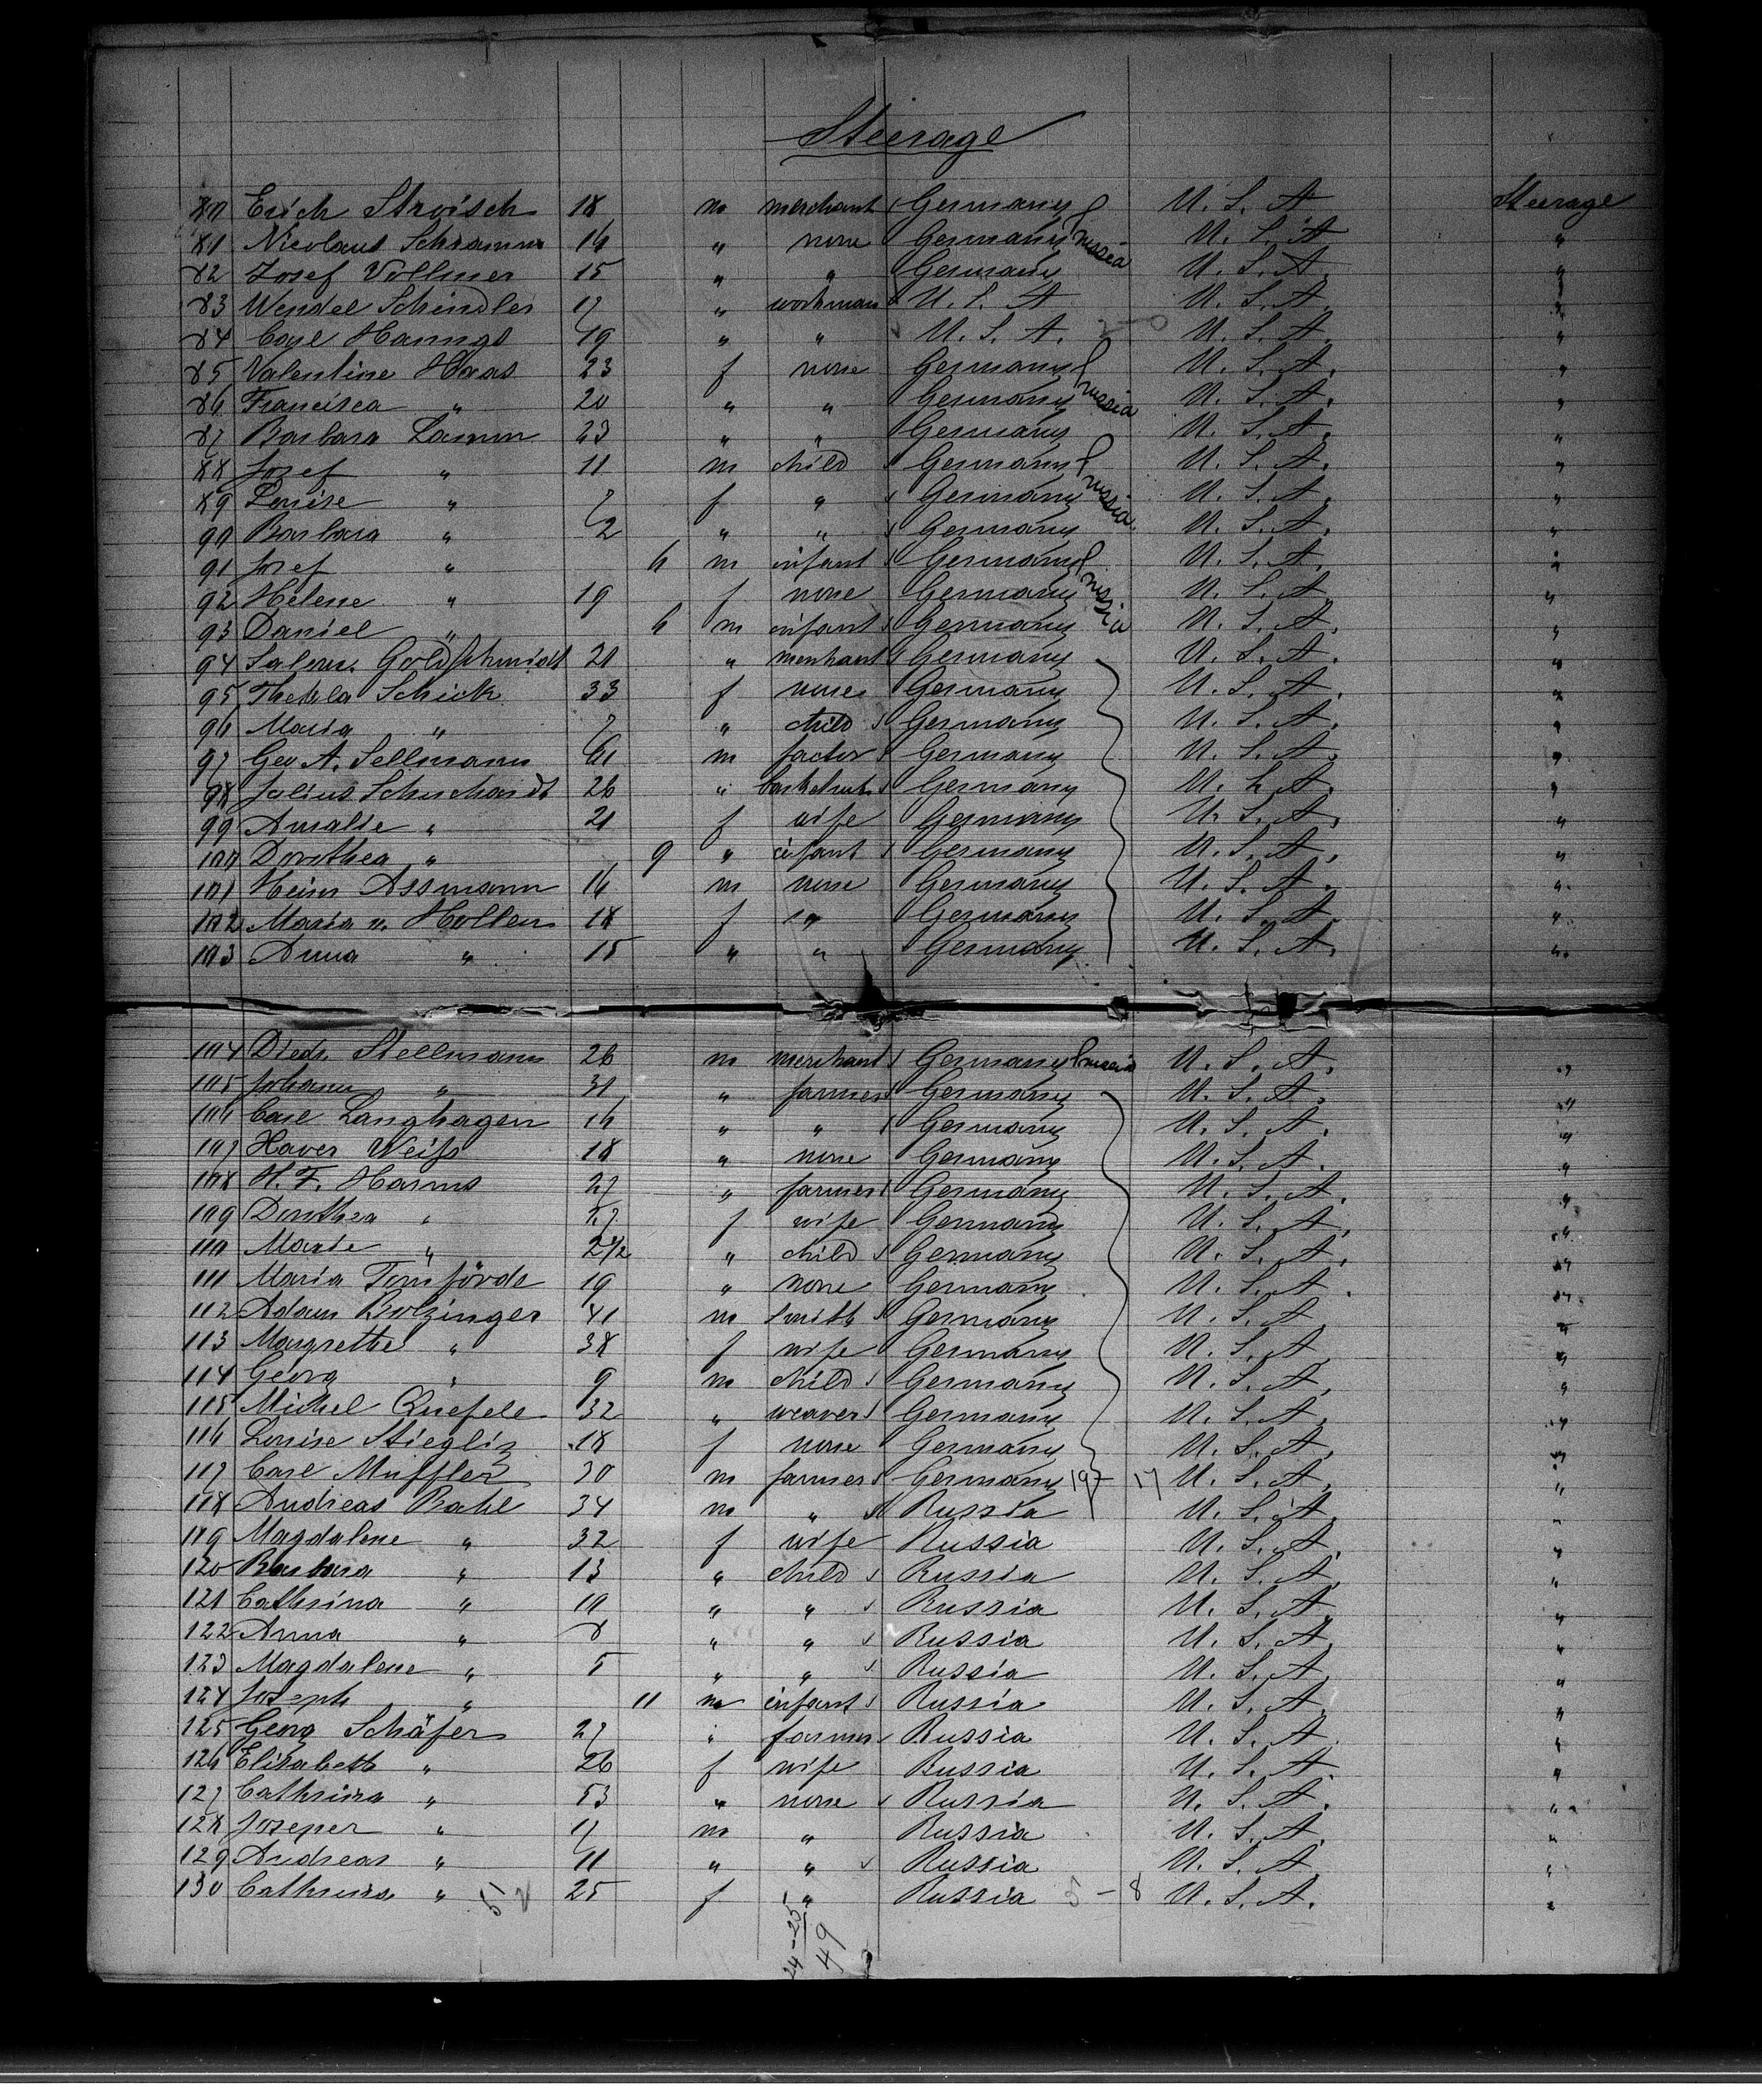 Steerage
80 Erich Stroisch 18 m merchant Germany U. S. A Steerage
81 Nicolaus Schramm 16 " none Germany Russia U. S. A "
82 Josef Vollmer 15 " " Germany U. S. A. "
83 Wendel Schindler 17 " workman U. S. A U. S. A. "
84 Hanngs 19 " " U. S. A. 2-0 U. S. A. "
85 Valentine Haas 23 f none Germany U. S. A. "
86 Francisca " 20 " " Germany Russia U. S. A. "
87 Barbara Lamm 23 " " Germany U. S. A. "
88 Josef " 11 m child Germany U. S. A. "
89 Louise " 7 f " Germany Russia. U. S. A. "
90 Barbara " 2 " " Germany U. S. A. "
91 Josef " 6 m infant Germany U. S. A. "
92 Helene " 19 f none Germany Russia U. S. A. "
93 Daniel " 6 m infant Germany U. S. A. "
94 Salom. Goldschmidt 21 " merchant Germany U. S. A. "
95 Thekla Schick 33 f none Germany U. S. A. "
96 Maria " 7 " child Germany U. S. A. "
97 Geo A. Sellmann 61 m factor Germany U. S. A. "
98 Julius Schuchardt 26 " Germany U. S. A. "
99 Amalie " 21 f wife Germany U. S. A. "
100 Dorothea " 9 " infant Germany U. S. A. "
101 Heinr Assmann 16 m none Germany U. S. A. "
102 Maria v. Hollen 18 f " Germany U. S. A. "
103 Anna " 15 " " Germany U. S. A. "
104 Diedr. Stellmann 26 m merchant Germany Russia U. S. A. "
105 Johann " 31 " farmer Germany U. S. A. "
106 Carl Langhagen 16 " " Germany U. S. A. "
107 Xaver Weiß 18 " none Germany U. S. A. "
108 H. F. Harms 27 " farmer Germany U. S. A. "
109 Dorothea " 27 f wife Germany U. S. A. "
110 Marie " 2½ " child Germany U. S. A. "
111 Maria Timförde 19 " none Germany U. S. A. "
112 Adam Bolzinger 41 m smith Germany U. S. A. "
113 Margrethe " 38 f wife Germany U. S. A. "
114 Georg " 9 m child Germany U. S. A. "
115 Michel Quefele 32 " weaver Germany U. S. A. "
116 Louise Stiegliz 18 f none Germany U. S. A. "
117 Carl Muffler 30 m farmer Germany 197 17 U. S. A. "
118 Andreas Bahl 34 m " Russia U. S. A. "
119 Magdalene " 32 f wife Russia U. S. A. "
120 Barbara " 13 " child Russia U. S. A. "
121 Cathrina " 10 " " Russia U. S. A. "
122 Anna " 8 " " Russia U. S. A. "
123 Magdalene " 5 " " Russia U. S. A. "
124 Joseph " 11 m infant Russia U. S. A. "
125 Georg Schäfer 27 " farmer Russia U. S. A. "
126 Elisabeth " 26 f wife Russia U. S. A. "
127 Cathrina " 53 " none Russia U. S. A. "
128 Joseper " 17 m " Russia U. S. A. "
129 Andreas " 11 " " Russia U. S. A. "
130 Cathrina " 25 f " Russia 5-8 U. S. A. "
51
2
24-25
49